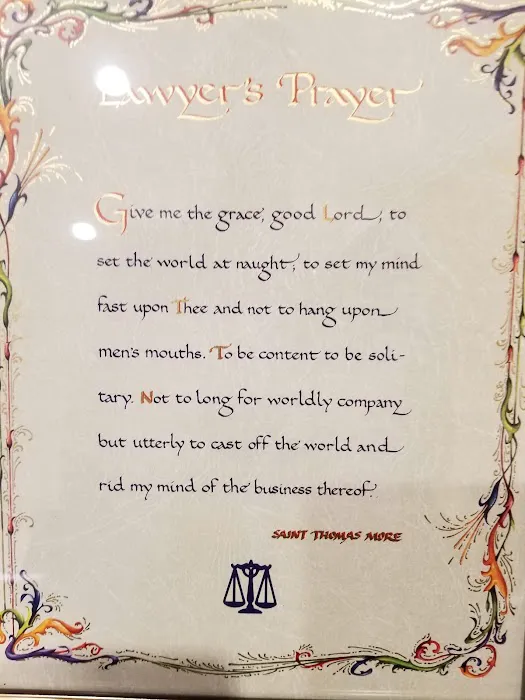 Lawyer's Prayer
Give me the grace, good Lord, to
set the world at naught, to set my mind
fast upon Thee and not to hang upon
men's mouths. To be content to be soli-
tary. Not to long for worldly company
but utterly to cast off the world and
rid my mind of the business thereof.
SAINT THOMAS MORE